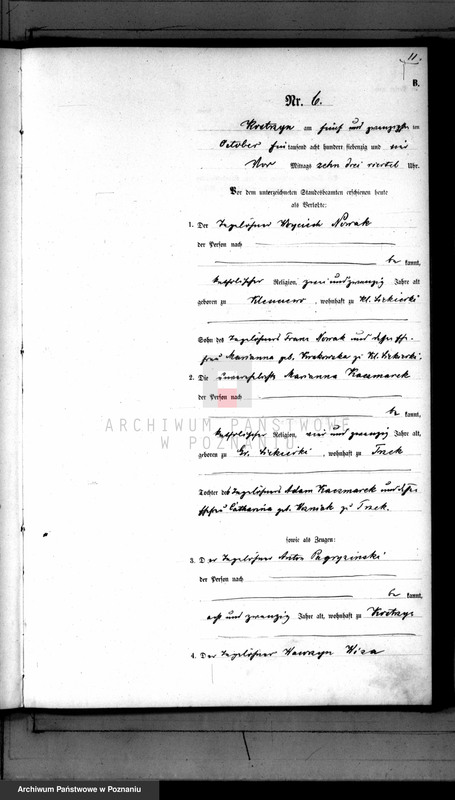 11.
B.
Nr. 6.
am fünf und zwanzigsten
October Ein tausend acht hundert siebenzig und
Vor Mittags zehn drei viertel Uhr.
Vor dem unterzeichneten Standesbeamten erschienen heute
als Verlobte:
1. Der Tagelöhner Woyciech Nowak
der Person nach
be kannt,
katholischer Religion, zwei und zwanzig Jahre alt
geboren zu, wohnhaft zu Kl.
Sohn des Tagelöhners Franz Nowak und dessen Ehe-
frau Marianna geb. zu Kl.
2. Die unverehelichte Marianna Kaczmarek
der Person nach
be kannt,
katholischer Religion, und zwanzig Jahre alt,
geboren zu Gr., wohnhaft zu Trzek
Tochter des Tagelöhners Adam Kaczmarek und dessen
Ehefrau Catharina geb. Wozniak zu Trzek.
sowie als Zeugen:
3. Der Tagelöhner Anton
der Person nach
be kannt,
acht und zwanzig Jahre alt, wohnhaft zu
4. Der Tagelöhner Wawrzyn
ARCHIWUM PAŃSTWOWE
W POZNANIU
Archiwum Państwowe w Poznaniu